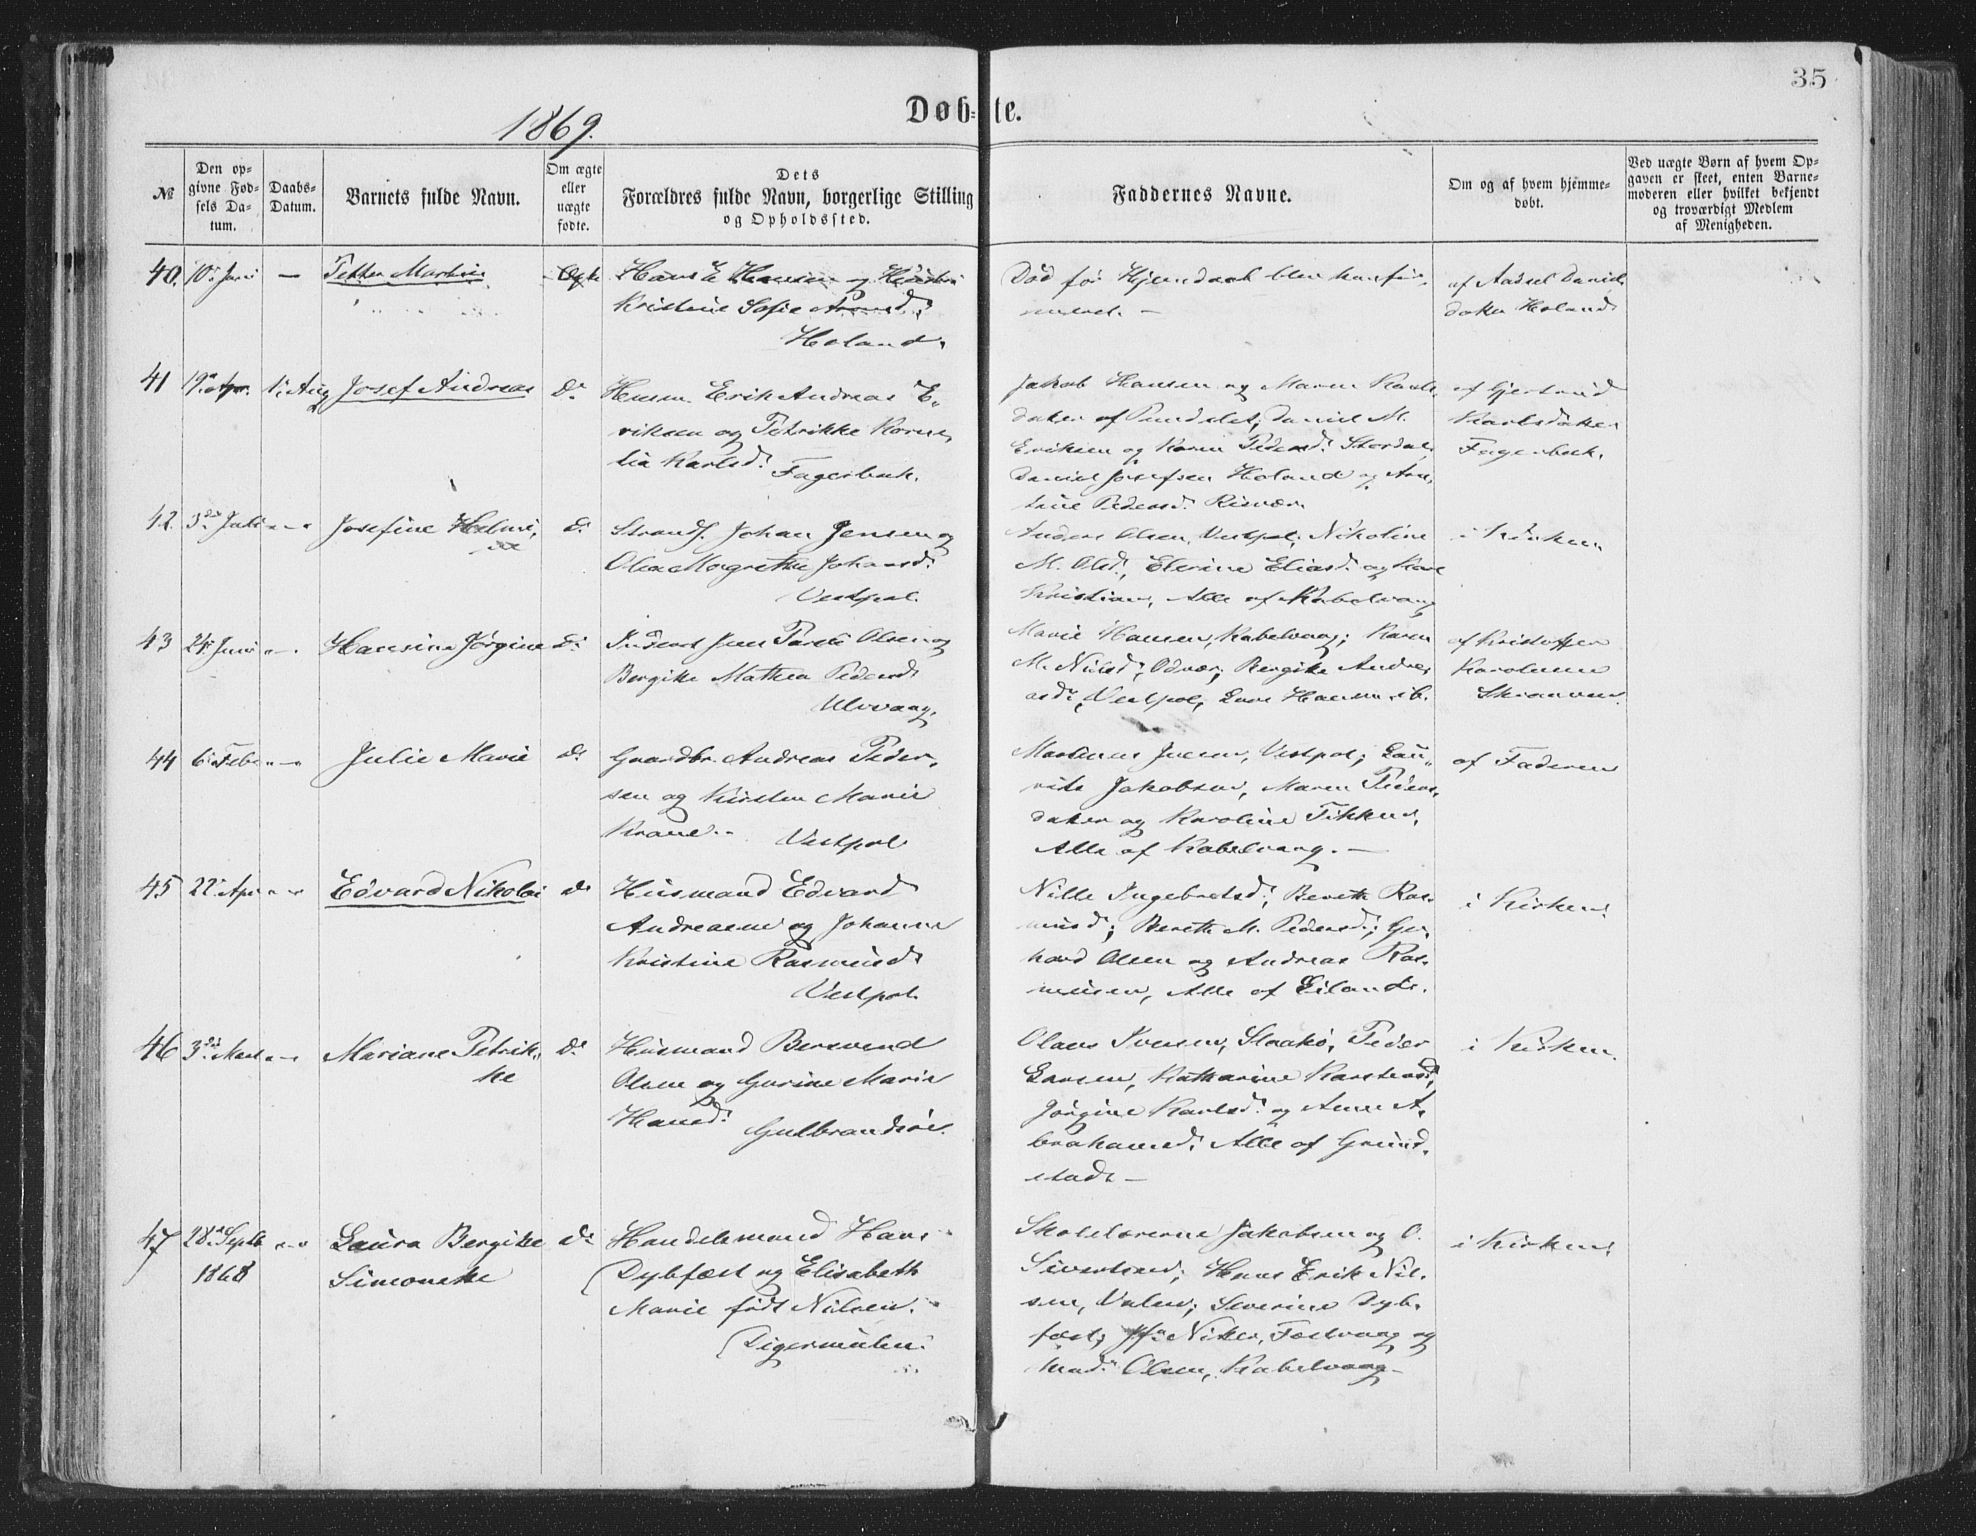 35
1869.
Døb-te.
№
Den op-
givne Fød-
sels Da-
tum.
Daabs-
Datum.
Barnets fulde Navn.
Om ægte
eller
uægte
fødte.
Dets
Forældres fulde Navn, borgerlige Stilling
og Opholdssted.
Faddernes Navne.
Om og af hvem hjemme-
døbt.
Ved uægte Børn af hvem Op-
gaven er skeet, enten Barne-
moderen eller hvilket bekjendt
og troværdigt Medlem
af Menigheden.
40. 10de Juni —
Martin
Ægte
Hans E Hansen og
Kristine Sofie
Holand.
Død før Hjemdaab blev konfir-
meret. —
af Daniels
datter Holand
41 19de Apr. 1ste Aug
Josef Andreas
do
Erik Andreas E-
riksen og Petrikke Korne-
lia Karlsd.
Fagerbak.
Jakob Hansen og Maren Karls-
datter af Daniel M.
Eriksen og Karen Pedersd. Stordal,
Daniel Josefsen Holand og
Pedersd. Risvær.
af Gjertrud
Karlsdatter
Fagerbak.
42. 3die Juli
Josefine
do
Strands. Johan Jensen og
Olea Margrethe Johansd.
Vestpol.
Anders Olsen, Vestpol; Nikoline
M. Olsd., Elerine Eliasd. og
Kristian, Alle af Kabelvaag
i Kirken.
43 24de Juni
Hansine Jørgine
do
Inderst Jens Olsen og
Bergitte Mathea Pedersd.
Ulvvaag.
Marie Hansen, Kabelvaag; Karen
M. Nilsd., Odvær; Bergitte Andre-
asd., Vestpol, Hansen ib.
af Kristoffer
Skraaven.
44 6te Febr
Julie Marie
do
Gaardbr. Andreas Peder-
sen og Kirsten Marie
Krane.
Vestpol
Martinus Vestpol; Lau-
rits Jakobsen, Maren Peders-
datter og Karoline
Alle af Kabelvaag. —
af Faderen
45 22de Apr
Edvard Nikolai
do
Husmand Edvard
Andreasen og Johanna
Kristine Rasmusd.
Vestpol.
Nille Ingebretsd.; Berette Ras-
musd; Bereth M. Pedersd.; Ger-
hard Olsen og Andreas Ras-
musen, Alle af
i Kirken.
46 3die Marts
Mariane Petrik-
ke
do
Husmand Berevend
Olsen og Gurine Marie
Hansd.
Gulbrandsøe.
Olaus Iversen, Peder
Larsen, Katharine Karstensd.,
Jørgine Karlsd. og Anne A-
brahamsd. Alle af Grund-
stad. —
i Kirken.
47 28de Septb
1868
Laura Bergitte
Simonette
do
Handelsmand Hans
Dybfæst og Elisabeth
Marie født Nilsen.
Digermulen.
Skolelærerne Jakobsen og O.
Sivertsen; Hans Erik Nil-
sen, Valen; Severine Dyb-
fæst, og
Mad. Olsen, Kabelvaag
i Kirken.